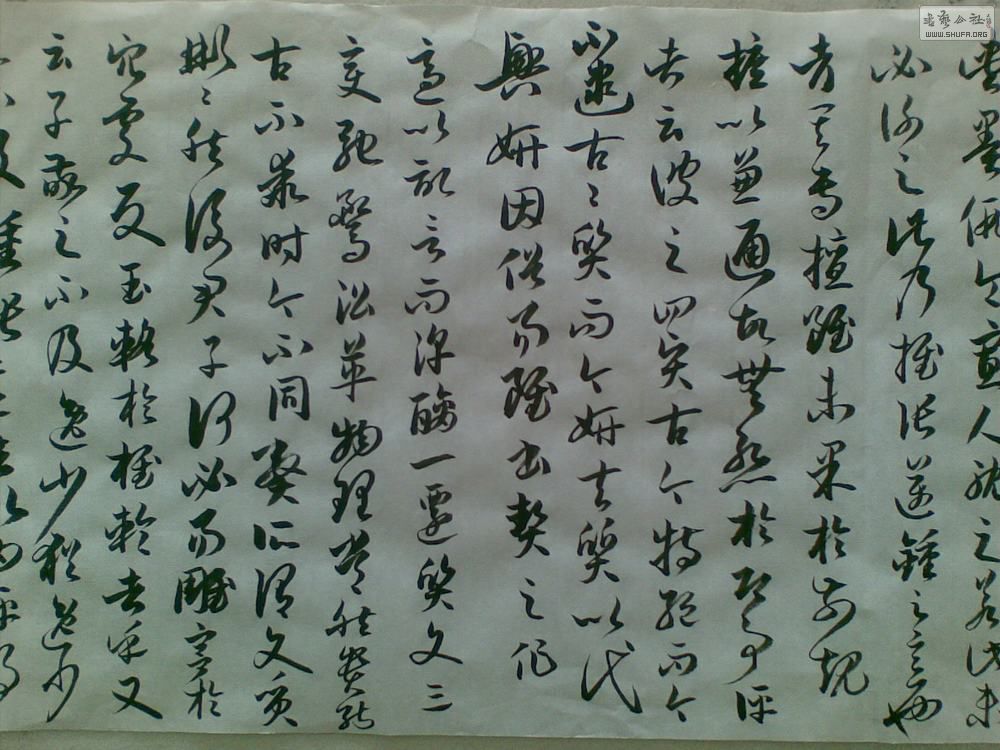 盡墨假令寡人耽之若此未
必謝之此乃推張邁鍾之意也
考其專擅雖未果於前規
摭以兼通故無慚於即事評
者云彼之四賢古今特絕而今
不逮古古質而今妍夫質以代
興妍因俗易雖書契之作
適以記言而淳醨一遷質文三
變馳騖沿革物理常然貴能
古不乖時今不同弊所謂文質
彬彬然後君子何必易雕宮於
穴處反玉輅於椎輪者乎又
云子敬之不及逸少猶逸少
之不及鍾張意者以為評得
书艺公社
WWW.SHUFA.ORG